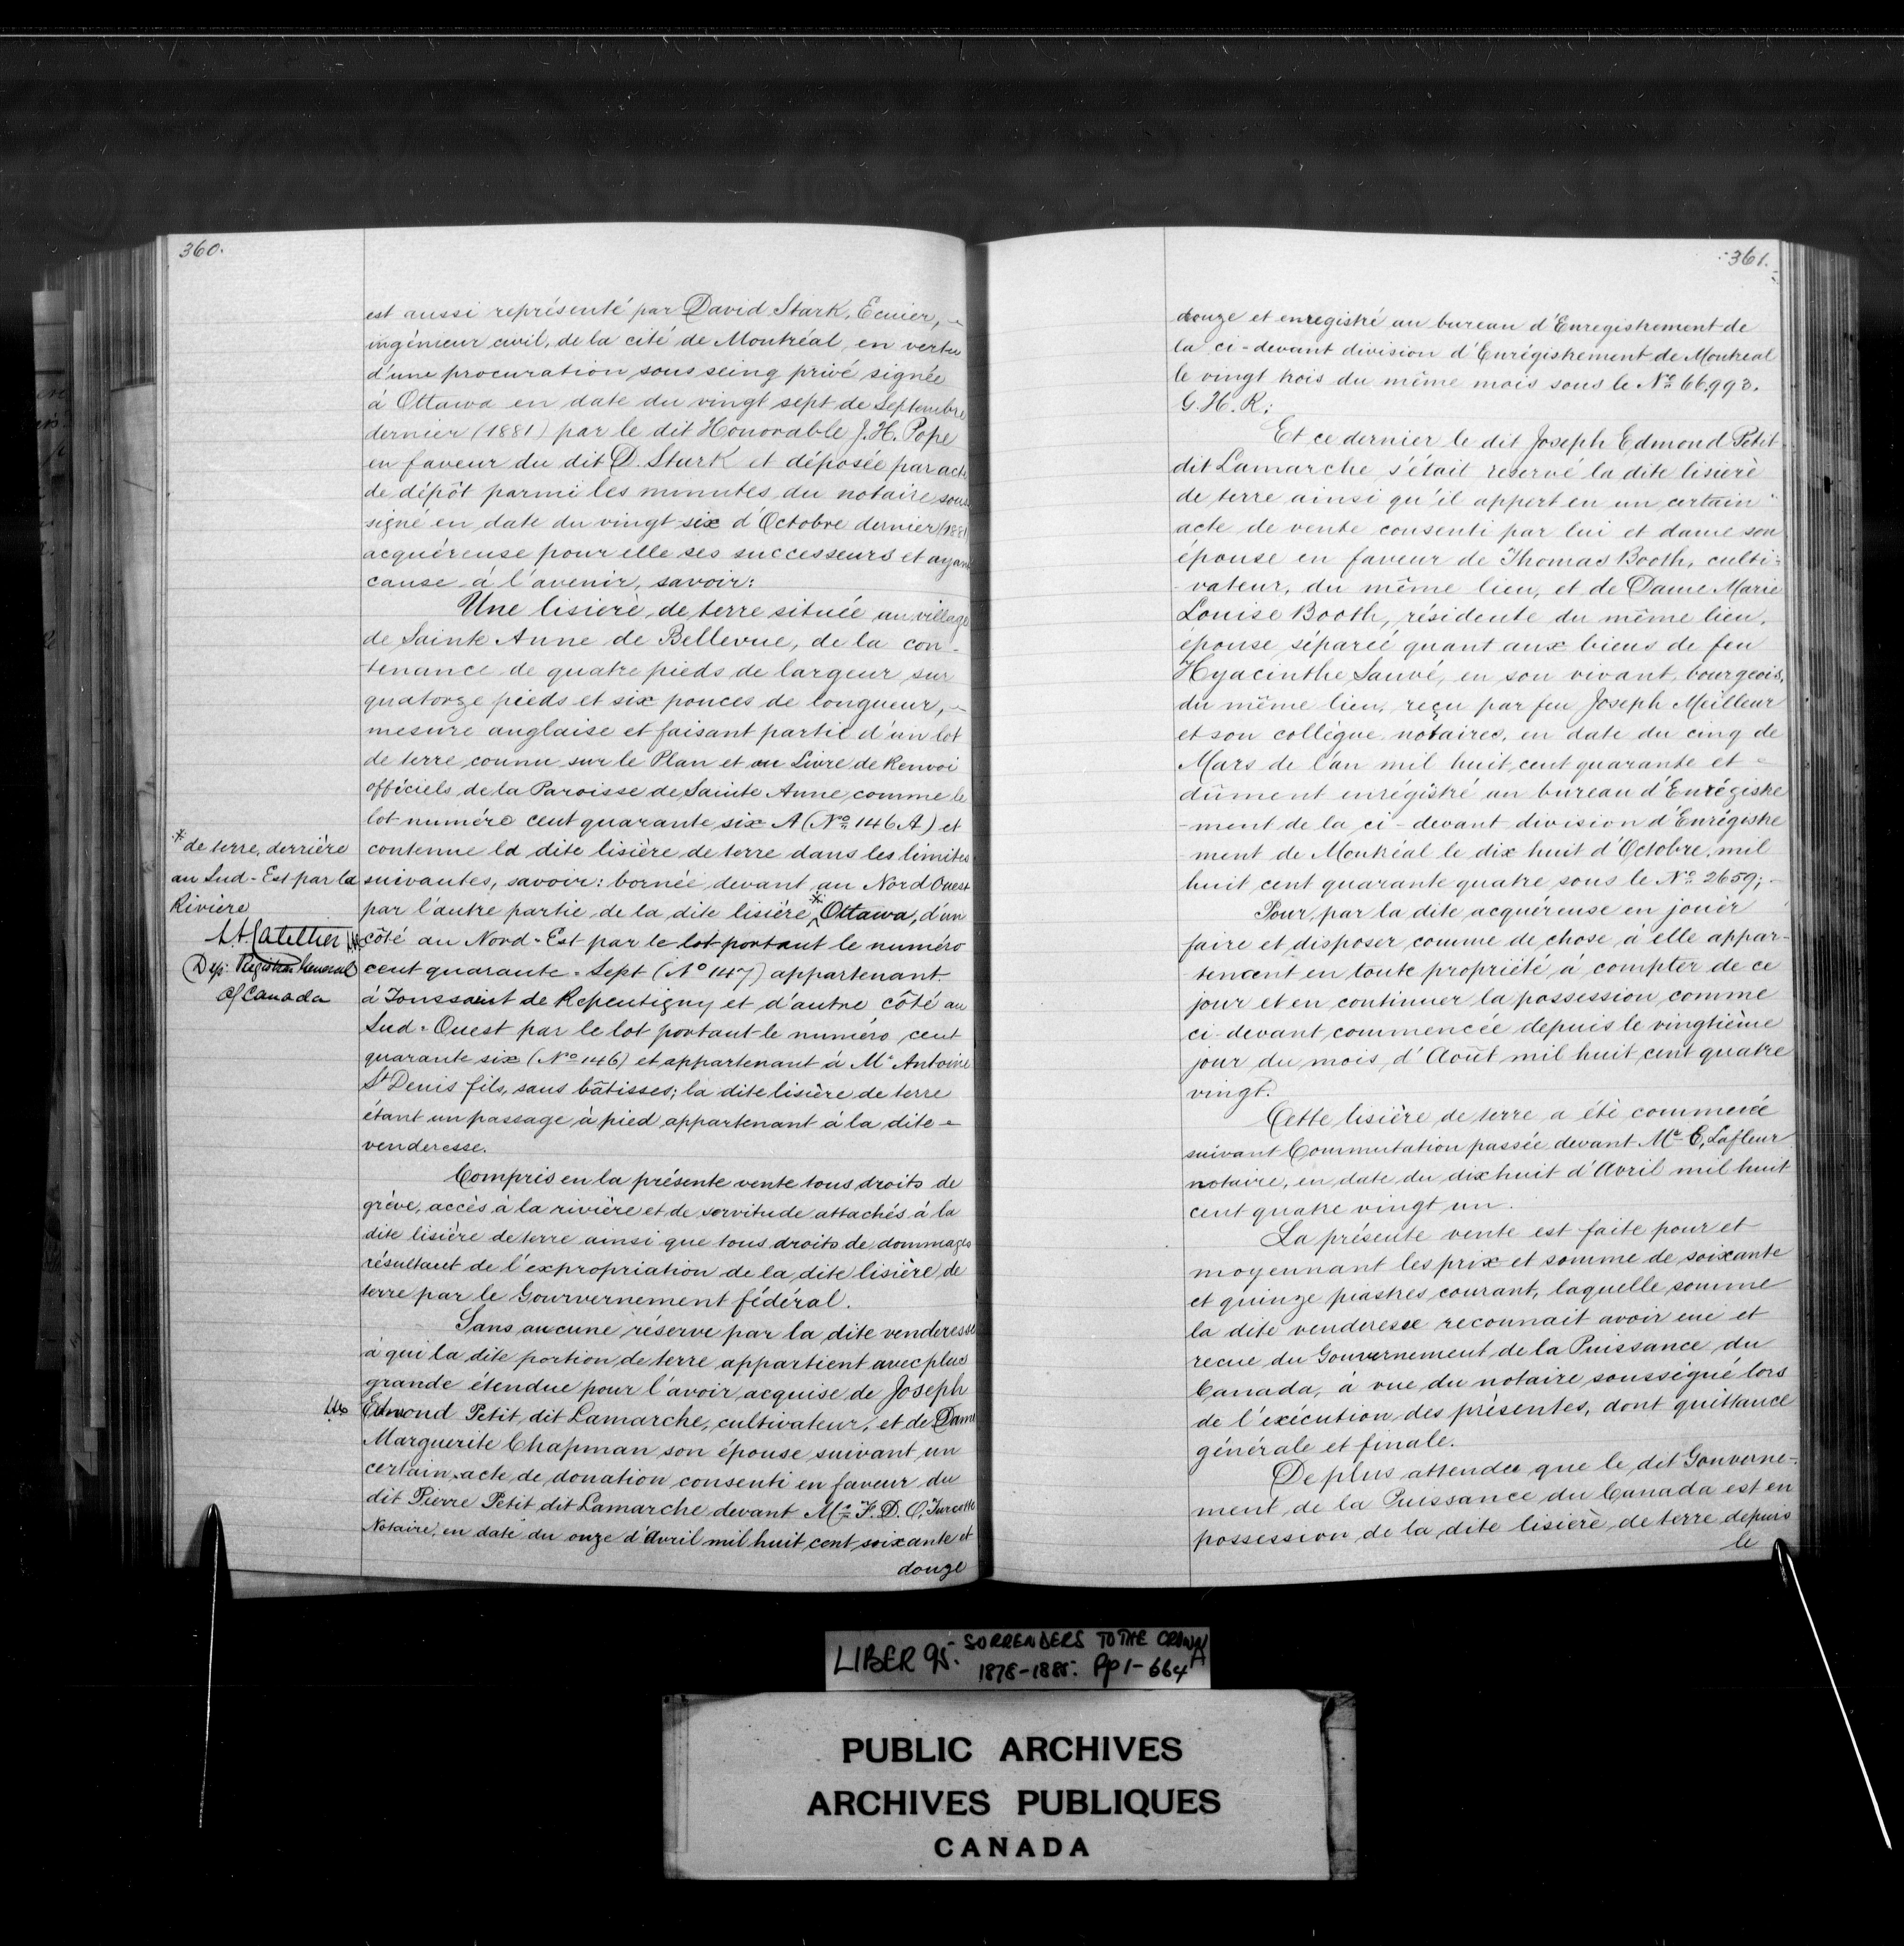 360.
est aussi représenté par David Stark, Ecuier,
ingénieur civil, de la cité de Montréal, en vertu
d'une procuration sous seing privé signée
à Ottawa en date du vingt sept de Septembre
dernier (1881) par le dit Honorable J. H. Pope
en faveur du dit D. Stark et déposée par acte
de dépôt parmi les minutes du notaire sous
signé en date du vingt six d'Octobre dernier (1881
acquéreuse pour elle ses successeurs et ayant
cause à l'avenir, savoir:
Une lisière de terre située au village
de Sainte Anne de Bellevue, de la con-
tenance de quatre pieds de largeur sur
quatorze pieds et six pouces de longueur,
mesure anglaise et faisant partie d'un lot
de terre connu sur le Plan et au Livre de Renvoi
officiels de la Paroisse de Sainte Anne comme le
lot numéro cent quarante six A (No 146 A) et
contenue la dite lisière de terre dans les limites
suivantes, savoir: bornée devant au Nord Ouest
par l'autre partie de la dite lisière * Ottawa, d'un
côté au Nord-Est par le lot portant le numéro
cent quarante-Sept (No 147) appartenant
à Toussaint de Repentigny et d'autre côté au
Sud-Ouest par le lot portant le numéro cent
quarante six (No 146) et appartenant à Mr Antoine
St Denis fils, sans bâtisses; la dite lisière de terre
étant un passage à pied appartenant à la dite
venderesse.
Compris en la présente vente tous droits de
grève, accès à la rivière et de servitude attachés à la
dite lisière de terre ainsi que tous droits de dommages
résultant de l'expropriation de la dite lisière de
terre par le Gourvernement fédéral.
Sans aucune réserve par la dite venderesse
à qui la dite portion de terre appartient avec plus
grande étendue pour l'avoir acquise de Joseph
Edmond Petit dit Lamarche, cultivateur, et de Dame
Marguerite Chapman son épouse suivant un
certain acte de donation consenti en faveur du
dit Pierre Petit dit Lamarche devant Mre F. D. O. Turcotte
Notaire, en date du onze d'Avril mil huit cent soixante et
douze
* de terre, derrière
au Sud-Est par la
Rivière
L. A. Catellier
Dep. Registrar General
of Canada
361.
douze et enregistré au bureau d'Enregistrement de
la ci-devant division d'Enrégistrement de Montreal
le vingt trois du même mois sous le No 66.993.
G. H. R;
Et ce dernier le dit Joseph Edmond Petit
dit Lamarche s'était reservé la dite lisière
de terre ainsi qu'il appert en un certain
acte de vente consenti par lui et dame son
épouse en faveur de Thomas Booth, culti-
-vateur, du même lieu, et de Dame Marie
Louise Booth, résidente du même lieu,
epouse séparée quant aux biens de feu
Hyacinthe Sauvé, en son vivant, bourgeois,
du même lieu, reçu par feu Joseph Meilleur
et son collègue notaires, en date du cinq de
Mars de l'an mil huit cent quarante et
dûment enrégistré au bureau d'Enrégistre
-ment de la ci-devant division d'Enrégistre
-ment de Montréal le dix huit d'Octobre mil
huit cent quarante quatre sous le No 2659;
Pour, par la dite acquéreuse en jouir
faire et disposer comme de chose à elle appar-
tenant en toute propriété à compter de ce
jour et en continuer la possession comme
ci-devant commencée depuis le vingtième
jour du mois d'Août mil huit cent quatre
vingt.
Cette lisière de terre a été commuée
suivant Commutation passée devant Mre C. Lafleur
notaire, en date du dix huit d'Avril mil huit
cent quatre vingt un.
La présente vente est faite pour et
moyennant les prix et somme de soixante
et quinze piastres courant, laquelle somme
la dite venderesse reconnait avoir eue et
recue du Gouvernement de la Puissance du
Canada, à vue du notaire soussigné lors
de l'exécution des présentes, dont quittance
générale et finale.
De plus attendu que le dit Gouverne-
ment de la Puissance du Canada est en
possession de la dite lisière de terre depuis
le
LIBER 95: SURRENDERS TO THE CROWN
1878-1885: Pp 1-664A
PUBLIC ARCHIVES
ARCHIVES PUBLIQUES
CANADA